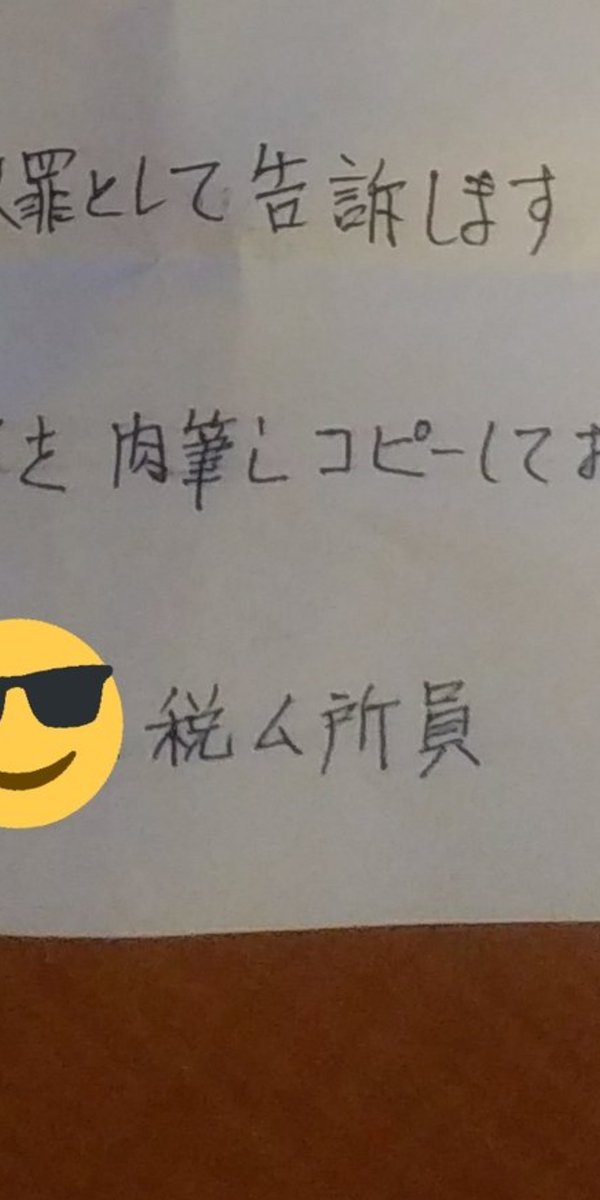 罪として告訴します
を 肉筆しコピーしてお
税ム所員